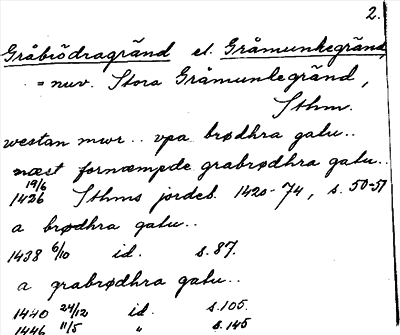 2.
Gråbrödragränd el. Gråmunkegränd
= nuv. Stora Gråmunkegränd,
Sthm.
westan mwr .. vpa brødhra gatu ..
næst fornæmpde grabrødhra gatu ..
19/6
1436 Sthms jordeb. 1420-74, s. 50-51
a brødhra gatu ..
1438 6/10 id. s. 87.
a grabrødhra gatu ..
1440 24/12 id. s. 105.
1446 11/5 " s. 145